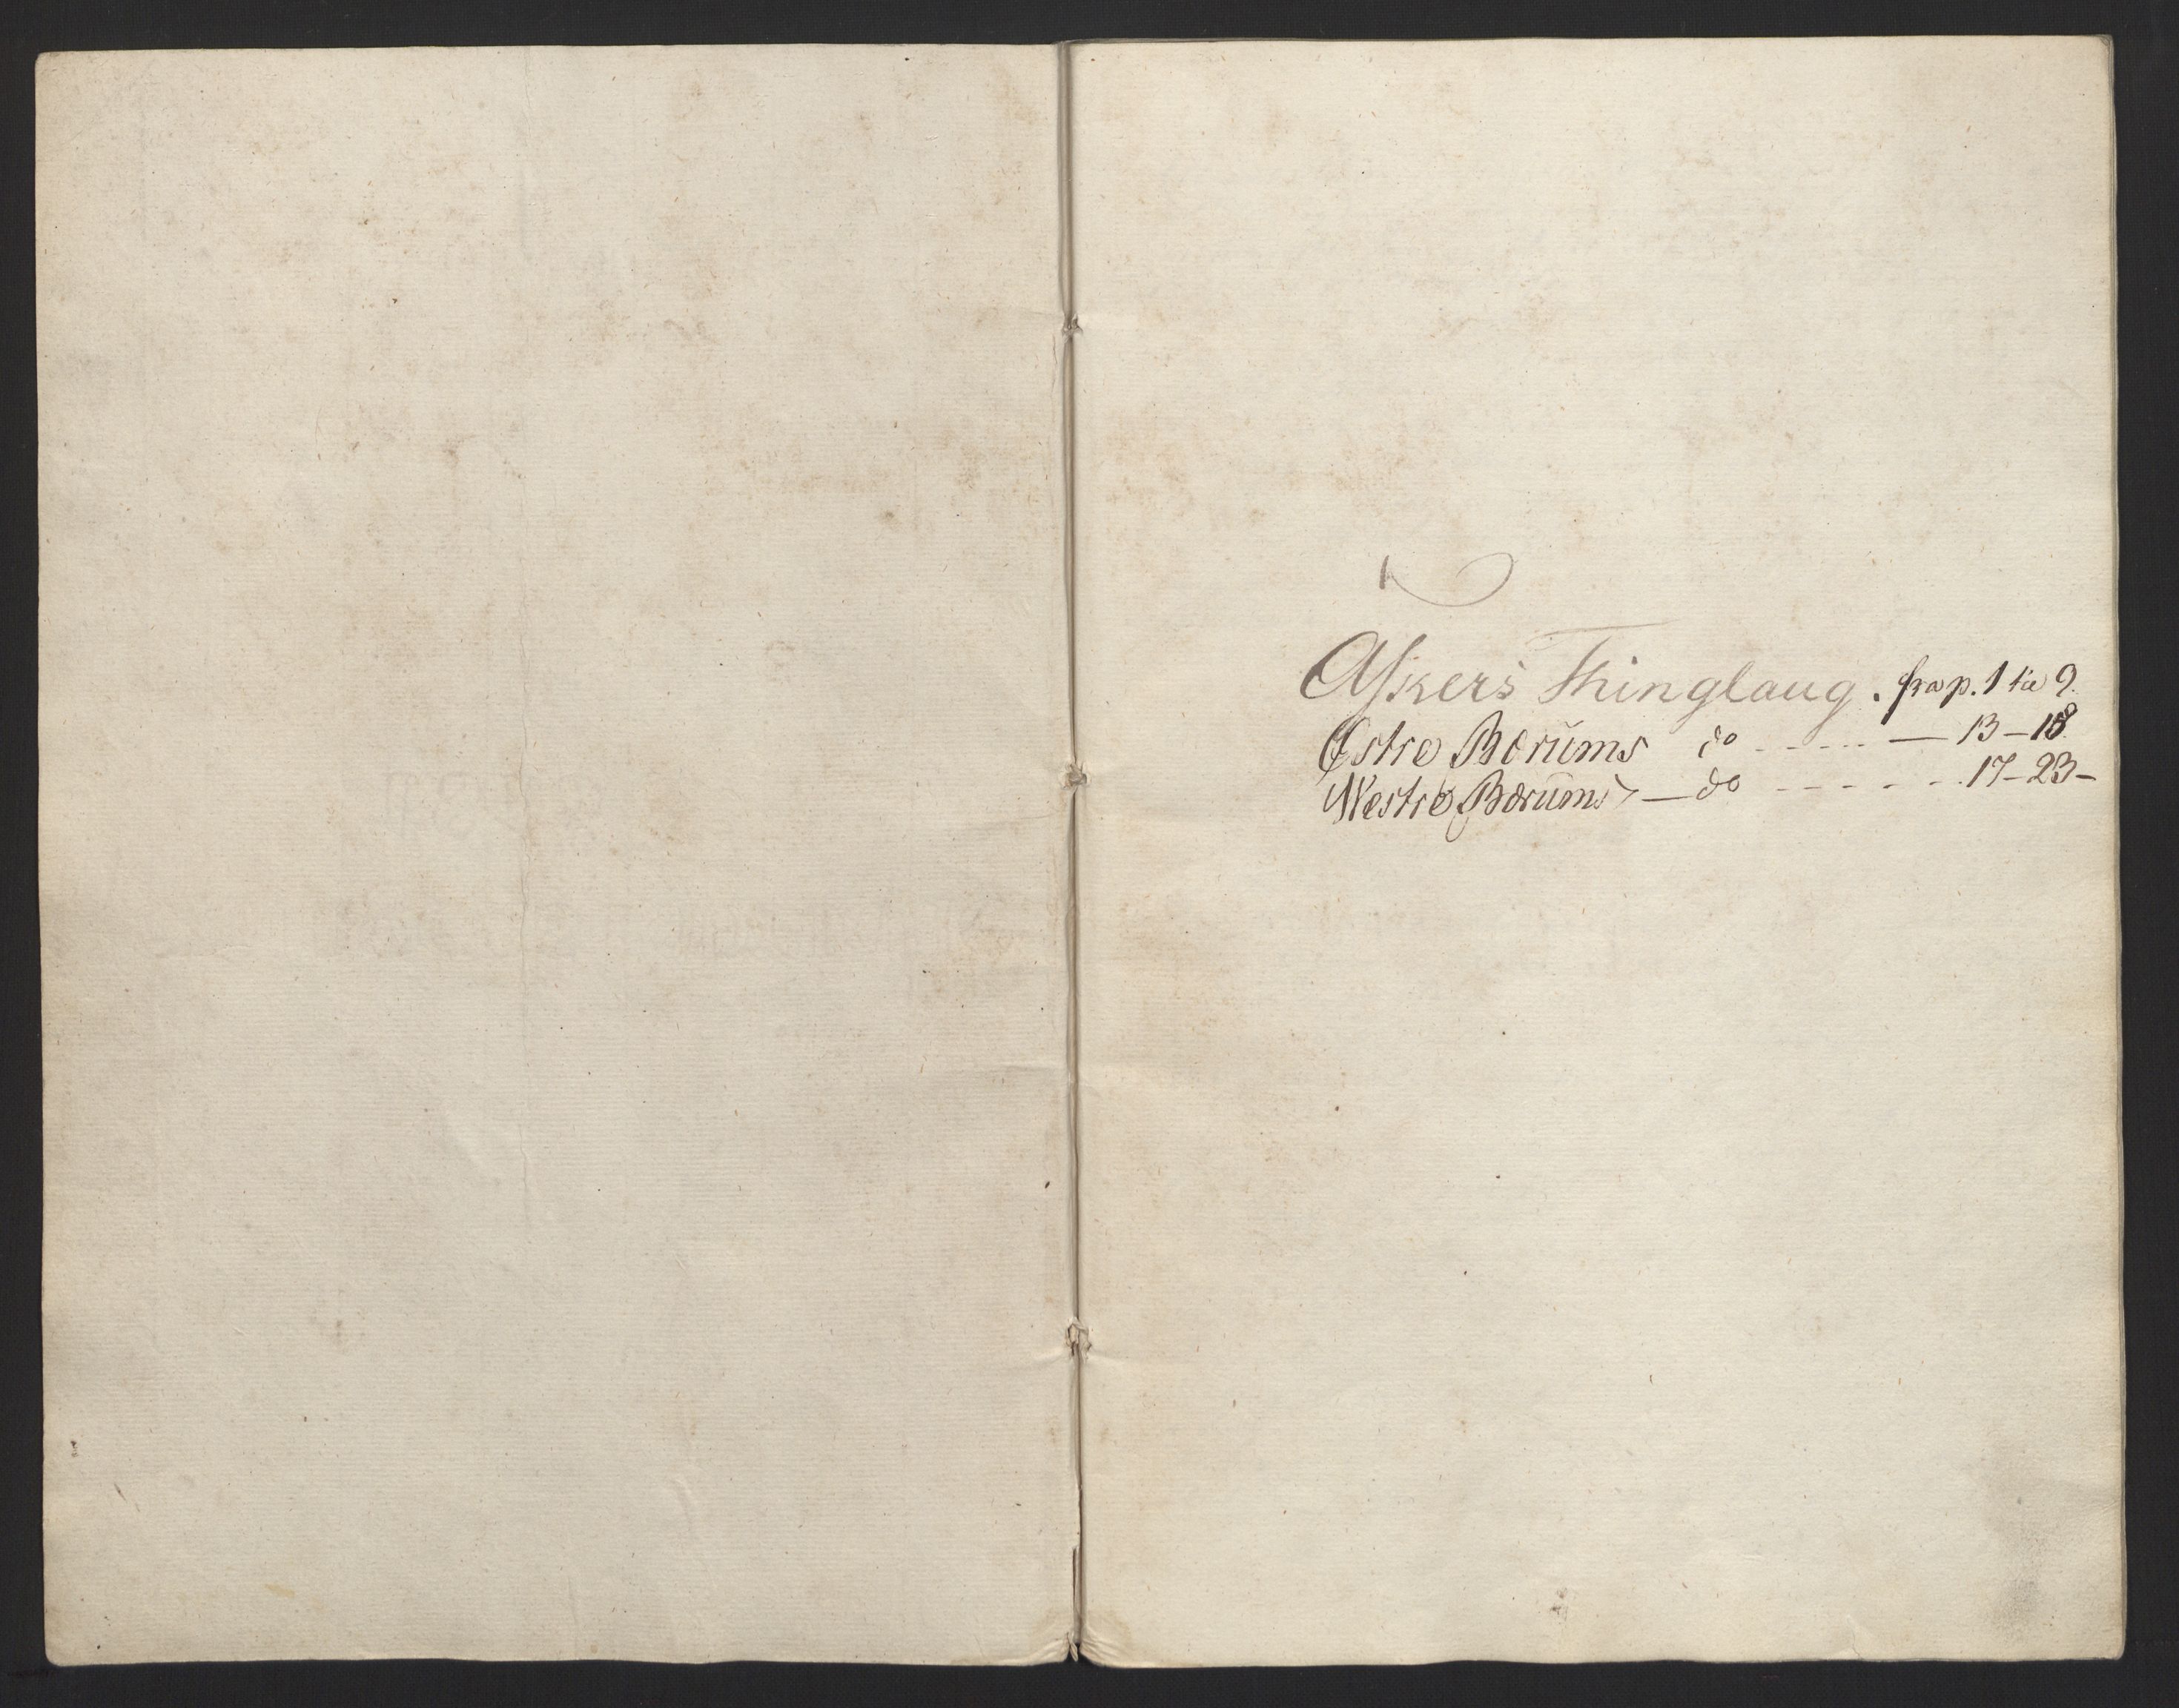 Askers Thinglaug. fra p. 1 til 9.
Østre Bærums do - - - - - — 13 — 18.
Westre Bærums — do - - - - - - 17 - 23 -